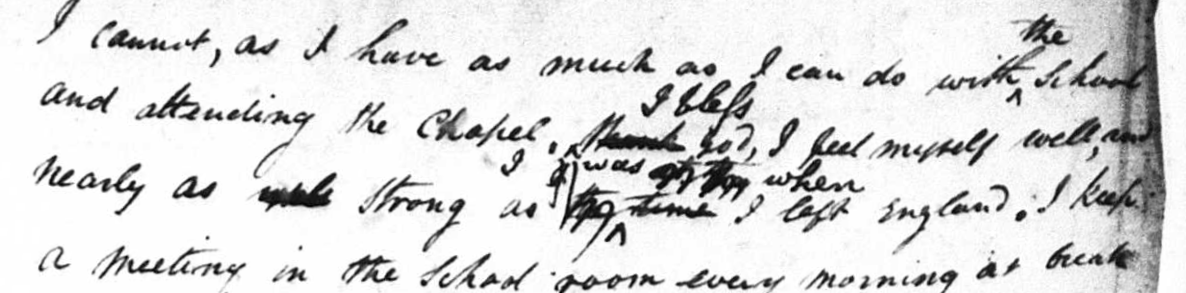 I cannot, as I have as much as I can do with the School
and attending the Chapel. I bless thank God, I feel myself well, and
nearly as strong as I was when the time I left England. I keep
a meeting in the School room every morning at break